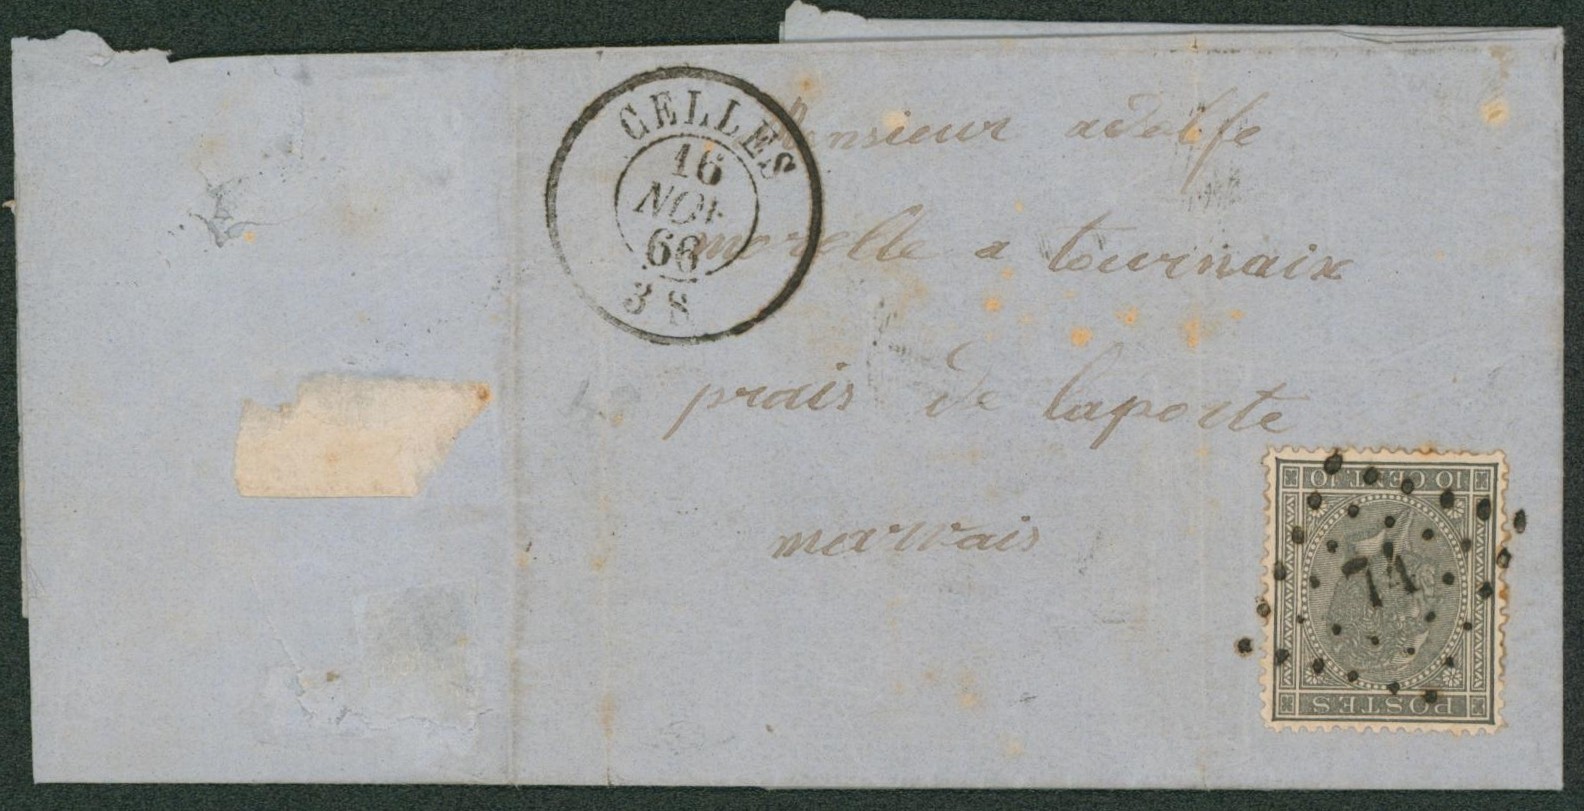 CELLES
16
NOV
66
3 S
Monsieur adolfe
morelle a tournaix
prais de laporte
marvais
10 CENT. 10
74
POSTES